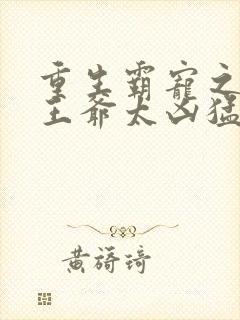 重生霸寵之
王爺太凶猛
黃籌琦